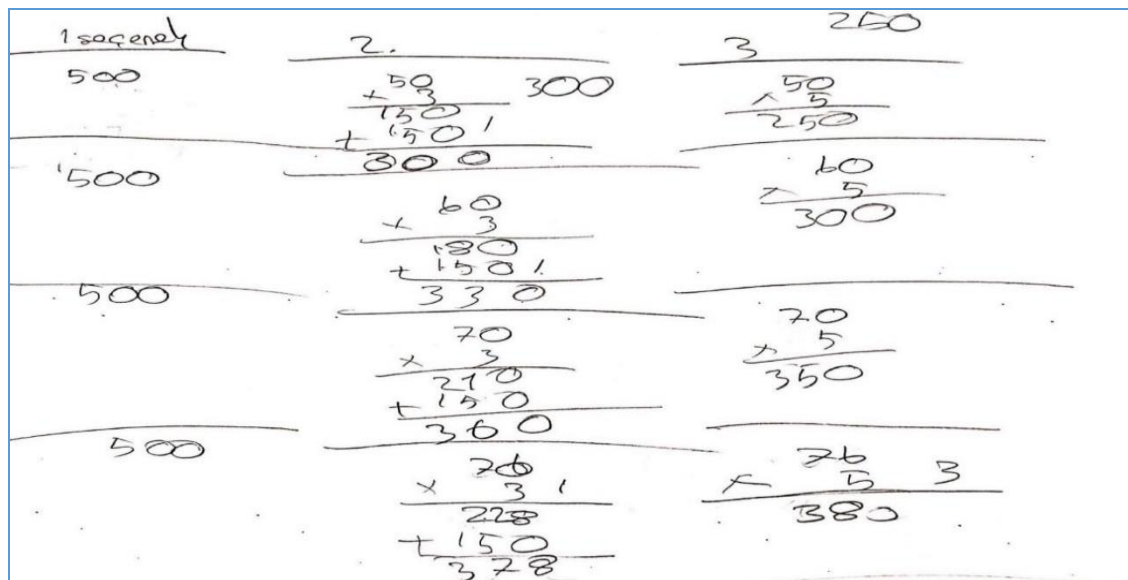 1 seçenek
500
500
500
500
2.
50
x 3
150
+ 150
300
300
60
x 3
180
+ 150
330
70
x 3
210
+ 150
360
76
x 3
228
+ 150
378
3
250
50
x 5
250
60
x 5
300
70
x 5
350
76
x 5 3
380